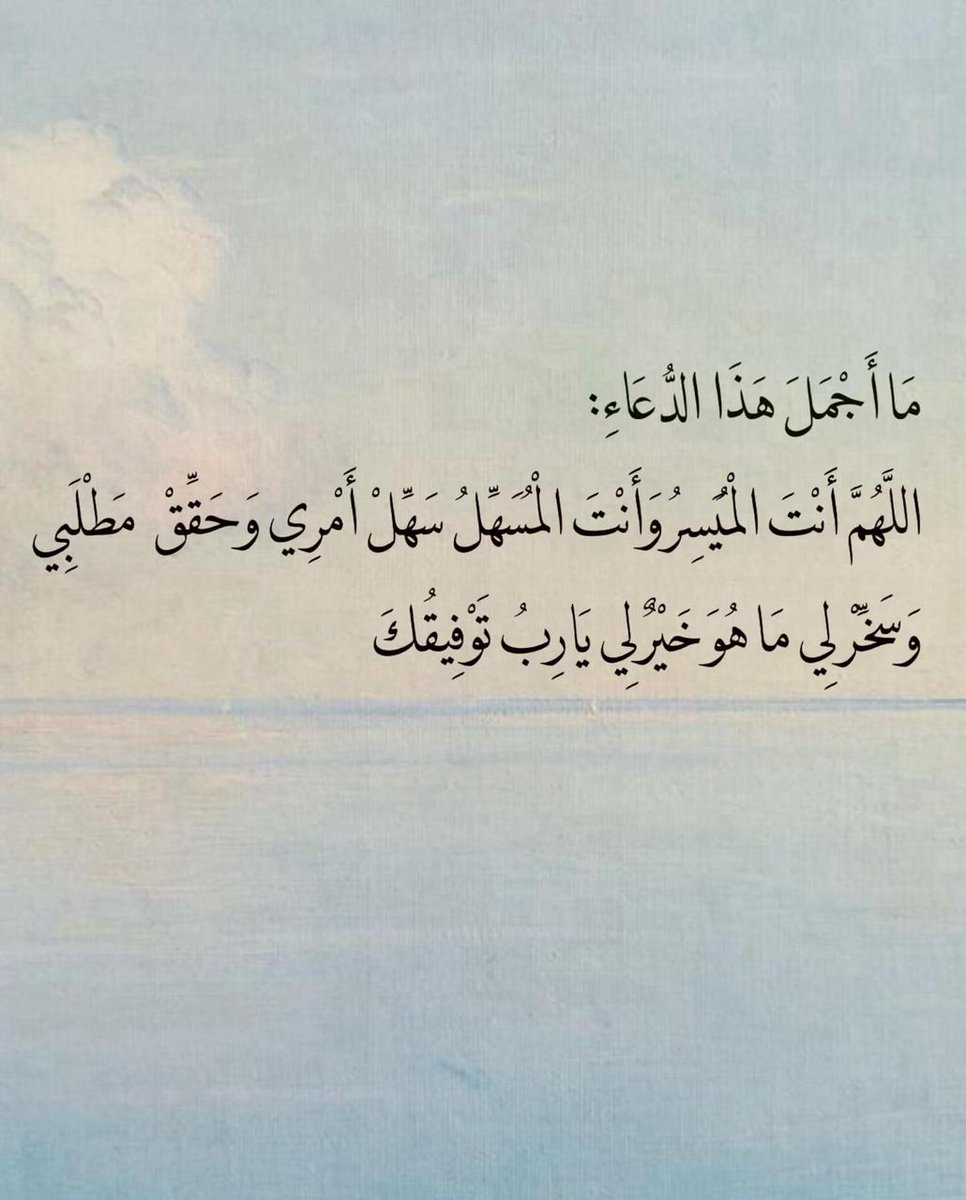 مَا أَجْمَلَ هَذَا الدُّعَاءِ:
اللَّهُمَّ أَنْتَ الْمُيَسِرُ وَأَنْتَ الْمُسَهِّلُ سَهِّلْ أَمْرِي وَحَقِّقْ مَطْلَبِي
وَسَخِّرْ لِي مَا هُوَ خَيْرٌ لِي يَارِبُ تَوْفِيقُكَ